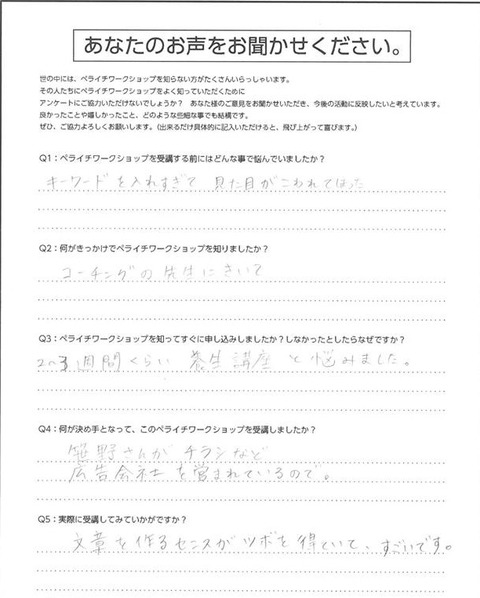 あなたのお声をお聞かせください。
世の中には、ペライチワークショップを知らない方がたくさんいらっしゃいます。
その人たちにペライチワークショップをよく知っていただくために
アンケートにご協力いただけないでしょうか？ あなた様のご意見をお聞かせいただき、今後の活動に反映したいと考えています。
良かったことや嬉しかったこと、どのような些細な事でも結構です。
ぜひ、ご協力よろしくお願いします。（出来るだけ具体的に記入いただけると、飛び上がって喜びます。）
Q1：ペライチワークショップを受講する前にはどんな事で悩んでいましたか？
キーワードを入れすぎて 見た目がこわれてしまった
Q2：何がきっかけでペライチワークショップを知りましたか？
コーチングの先生にきいて
Q3：ペライチワークショップを知ってすぐに申し込みしましたか？しなかったとしたらなぜですか？
2〜3週間くらい 養生講座と悩みました。
Q4：何が決め手となって、このペライチワークショップを受講しましたか？
笹野さんがチラシなど
広告会社を営まれているので。
Q5：実際に受講してみていかがですか？
文章を作るセンスがツボを得ていて、すごいです。